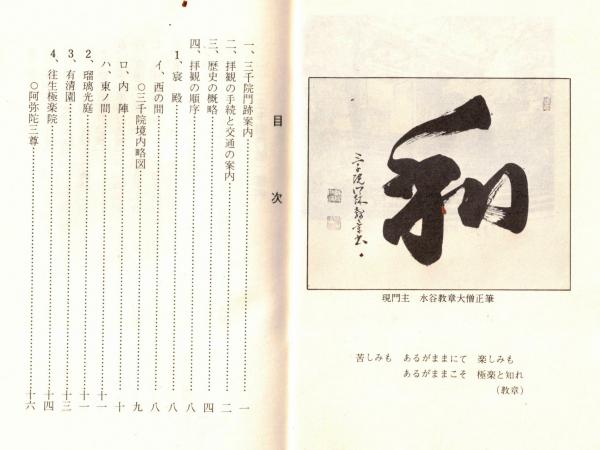 和
現門主 水谷教章大僧正筆
苦しみも あるがままにて 楽しみも
あるがままこそ 極楽と知れ
(教章)
目次
一、三千院門跡案内……………………一
二、拝観の手続と交通の案内……………………二
三、歴史の概略……………………四
四、拝観の順序……………………八
1、宸殿……………………八
イ、西の間……………………八
○三千院境内略図……………………九
ロ、内陣……………………十
ハ、東ノ間……………………十一
2、瑠璃光庭……………………十一
3、有清園……………………十三
4、往生極楽院……………………十四
○阿弥陀三尊……………………十六